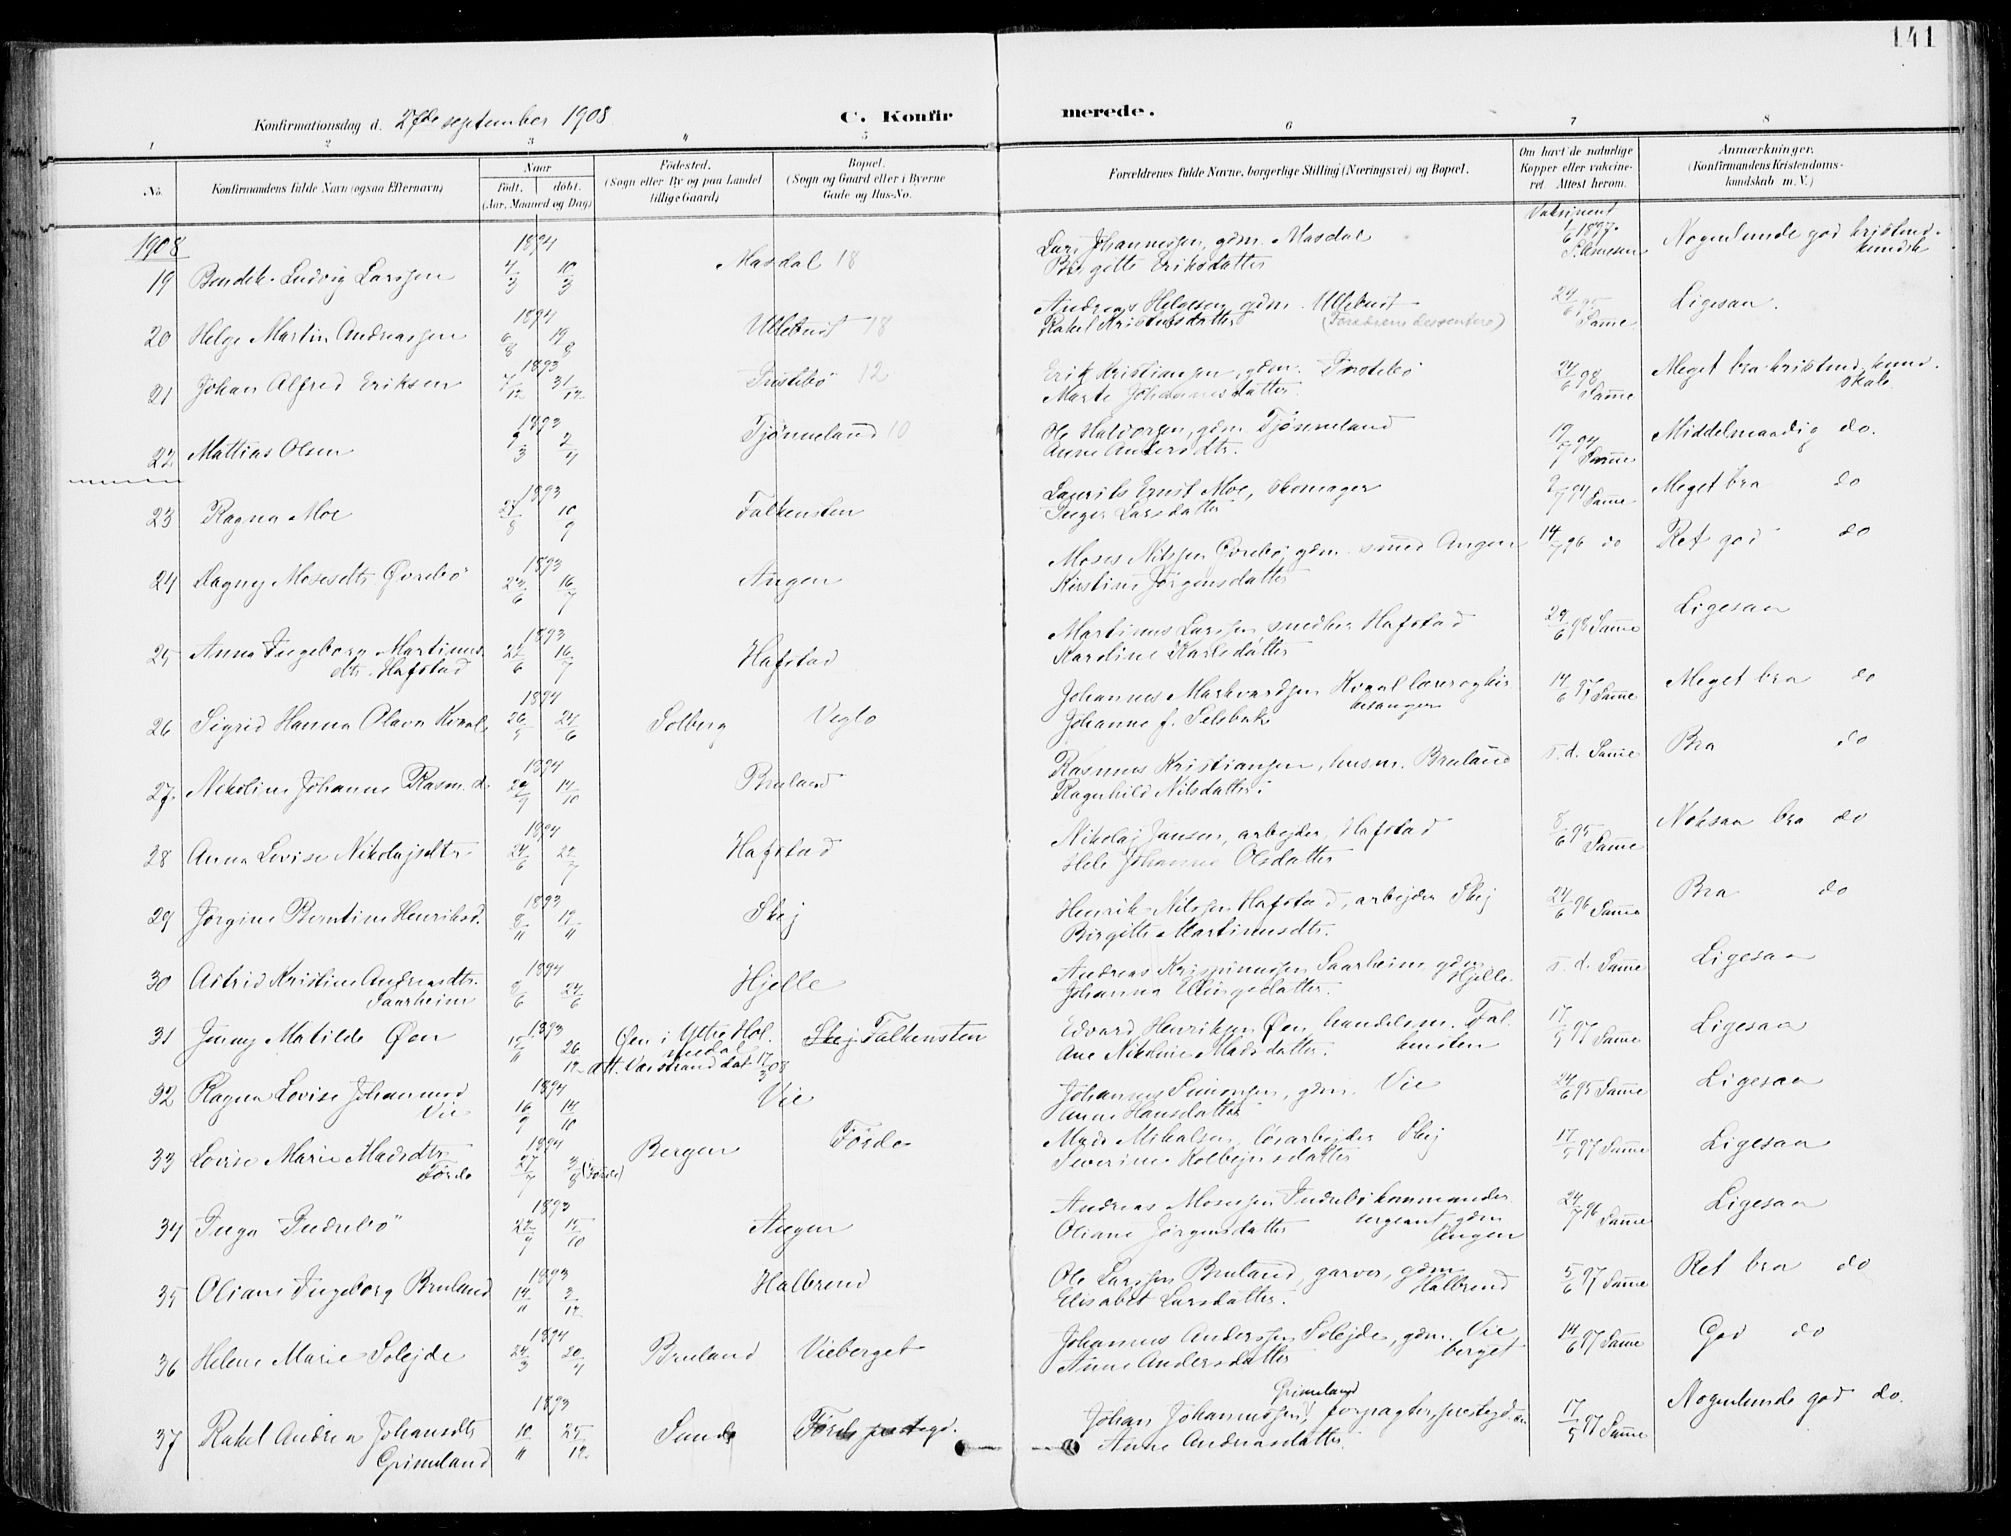 141
Konfirmationsdag d. 27de september 1908.
C. Konfirmerede.
1 2 3 4 5 6 7 8
No.
Konfirmandens fulde Navn (ogsaa Efternavn)
Naar
Født. døbt.
(Aar, Maaned og Dag)
Fødested.
(Sogn eller By og paa Landet
tillige Gaard)
Bopæl.
(Sogn og Gaard eller i Byerne
Gade og Hus-No.
Forældrenes fulde Navne, borgerlige Stilling (Næringsvei) og Bopæl.
Om havt de naturlige
Kopper eller vakcine-
ret. Attest herom.
Anmærkninger.
(Konfirmandens Kristendoms-
kundskab m. V.)
1908
19 Bendik Ludvig Larssen 1894 4/3 10/3 Masdal 18 Lars Johannessen, gdm. Masdal
Birgitte Eriksdatter Nogenlunde god kristend.
kundsk
20 Helge Martin Andreassen 1894 6/8 19/8 Ullebust 18 Andreas Helgesen gdm. Ullebust
Rakel Kristensdatter (Forældrene dissentere) 24/6 95 Samme Ligesaa.
21 Johan Alfred Eriksen 1893 7/12 31/12 Tristebø 12 Erik Kristiansen, gdm. Tristebø
Marte Johannesdatter 24/6 98 Samme Meget bra kristend. kund.
skab
22 Mattias Olsen 1893 9/3 2/4 Tjønneland 10 Ole Halvorsen, gdm. Tjønneland
Anne Andersdtr. 19/7 94 Samme Middelmaadig do.
23 Ragna Moe 1893 27/8 10/9 Falkensten Laurits Ernst Moe, skomager
Inger Larsdatter 94 Samme Meget bra do
24 Dagny Mosesdtr. Øvrebø 1893 23/6 16/7 Angen Moses Nilssen Øvrebø, gdm. smed Angen
Kirstine Jørgensdatter 14/7 96 do Ret god do
25 Anna Ingeborg Martinus
dtr. Hafstad 1893 22/6 16/7 Hafstad Martinus Larssen snedker Hafstad
Karoline Karlsdatter 24/6 98 Samme Ligesaa
26 Sigrid Hanna Olava Kvaal 1894 26/5 24/6 Solberg Veglo Johannes Markvardsen Kvaal lærer og kir
kesanger
Johanne f. Selsbak 14/6 97 Samme Meget bra do
27. Nikoline Johanne Rasm. d. 1894 29/9 14/10 Bruland Rasmus Kristiansen, husm. Bruland
Ragnhild Nilsdatter s. d. Samme Bra do
28 Anna Lovise Nikolajsdtr. 1894 24/6 22/7 Hafstad Nikolaj Jansen, arbejder, Hafstad
Johanne Olsdatter 8/6 95 Samme Noksaa bra do
29 Jørgine Berntine Henriksd. 1893 8/11 19/11 Skej Henrik Nilssen Hafstad, arbejder Skej
Birgitte Martinusdtr. 24/6 96 Samme Bra do
30 Astrid Kristine Andreasdtr.
Saarheim 1894 9/6 24/6 Hjelle Andreas Krispinussen Saarheim gdm
Hjelle
Johanna Ellingsdatter. s. d. Samme Ligesaa
31 Jenny Matilde Øen 1893 15/11 26/12 Øen i Ytre Hol
medal
att. Vaistrand dat 17/3 08 Skej Falkensten Edvard Henriksen Øen, handelsm. Fal
kensten
Ane Nikoline Madsdatter. 17/5 97 Samme Ligesaa
32 Ragna Lovise Johannesd
Vie 1894 16/9 14/10 Vie Johannes Simonsen, gdm. Vie
Anne Hansdatter 24/6 95 Samme Ligesaa
33 Lovise Marie Madsdtr.
Førde 1894 27/7 3/8 (Førde) Bergen Førde Mads Mikalsen, løsarbejder Skej
Severine Kolbejnsdatter 17/5 97 Samme Ligesaa
34 Inga Indrebø 1893 22/9 15/10 Angen Andreas Mosessen Indrebø kommander
sergeant gdm
Angen
Oliane Jørgensdatter 24/7 96 Samme Ligesaa
35 Oliane Ingeborg Bruland 1893 14/11 3/12 Halbrend Ole Larssen Bruland, garver, gdm
Halbrend
Elisabet Larsdatter. 5/6 97 Samme Ret bra do
36 Helene Marie Solejde 1894 24/3 20/4 Bruland Vieberget Johannes Anderssen Solejde, gdm. Vie
berget
Anne Andersdatter 14/6 97 Samme God do
37 Rakel Andrea Johansdtr
Grimeland 1893 10/11 25/12 Sunde Førde prestegd. Johan Johannessen Grimeland, forpagter, prestegd.
Anne Andreasdatter. 17/5 97 Samme Nogenlunde god do.